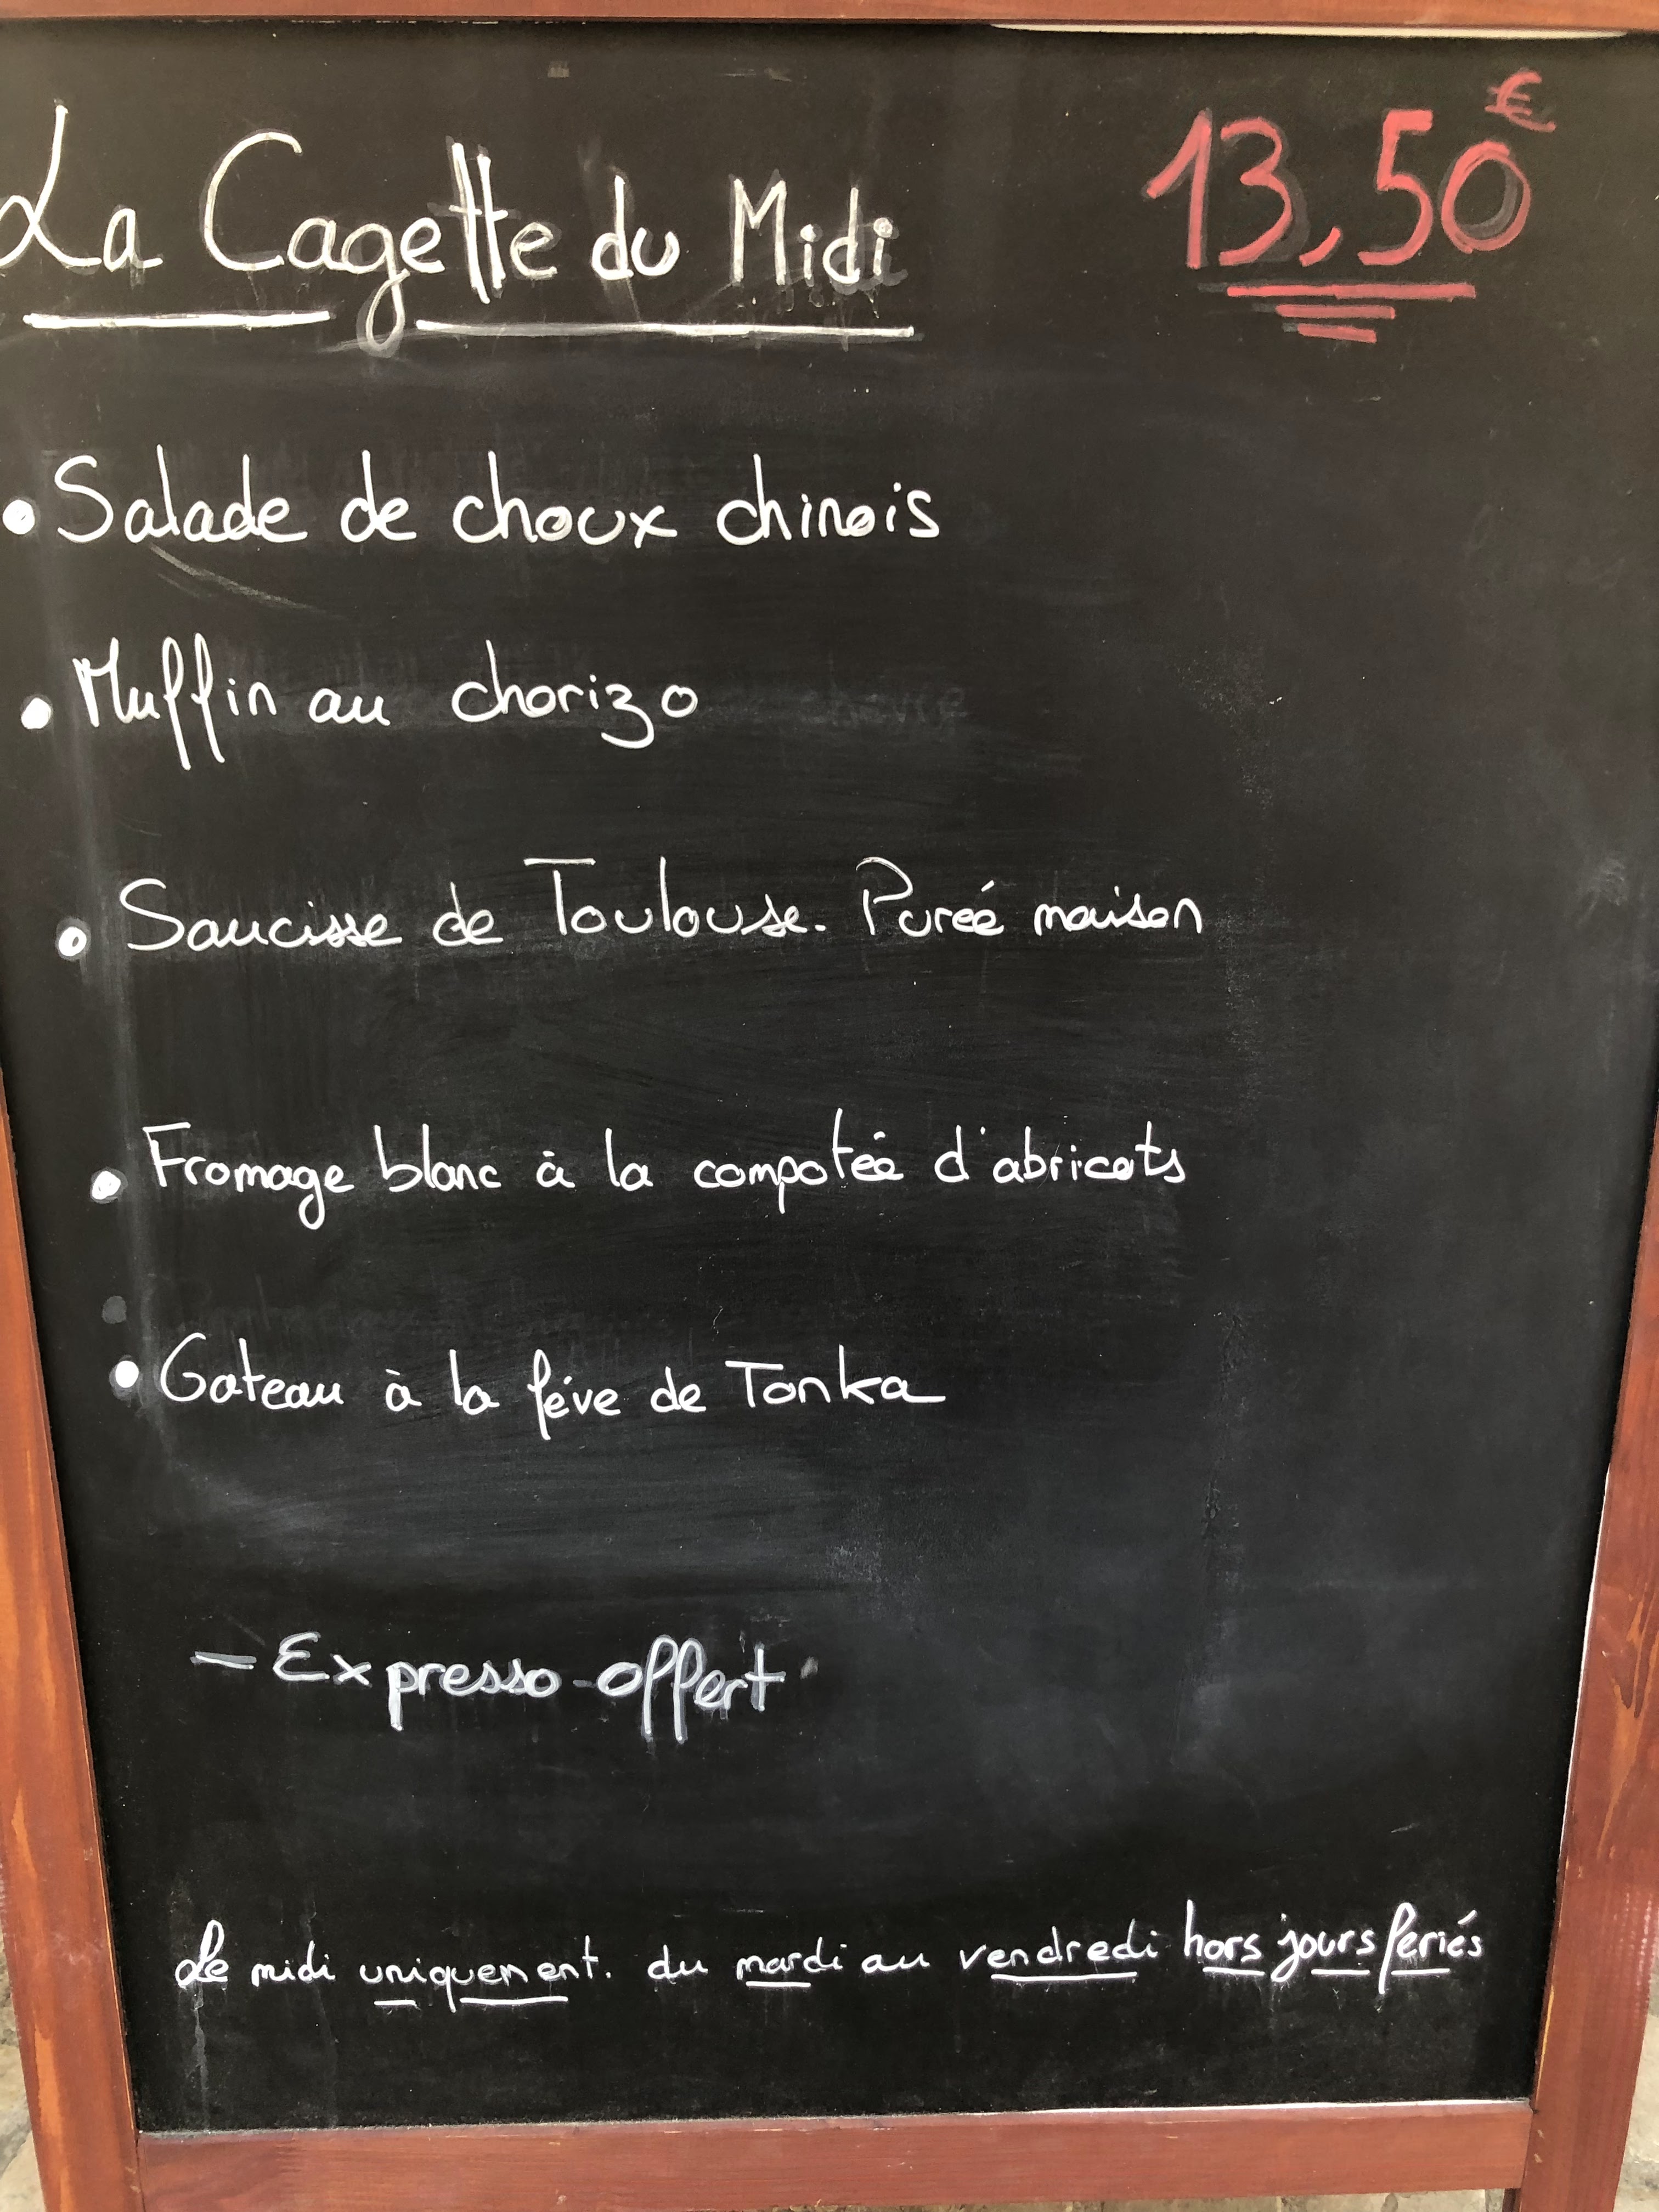 La Cagette du Midi 13,50€
• Salade de choux chinois
• Muffin au chorizo
• Saucisse de Toulouse. Pureé maison
• Fromage blanc à la compoteé d'abricots
• Gateau à la féve de Tonka
- Expresso offert
Le midi uniquement. du mardi au vendredi hors jours feriés